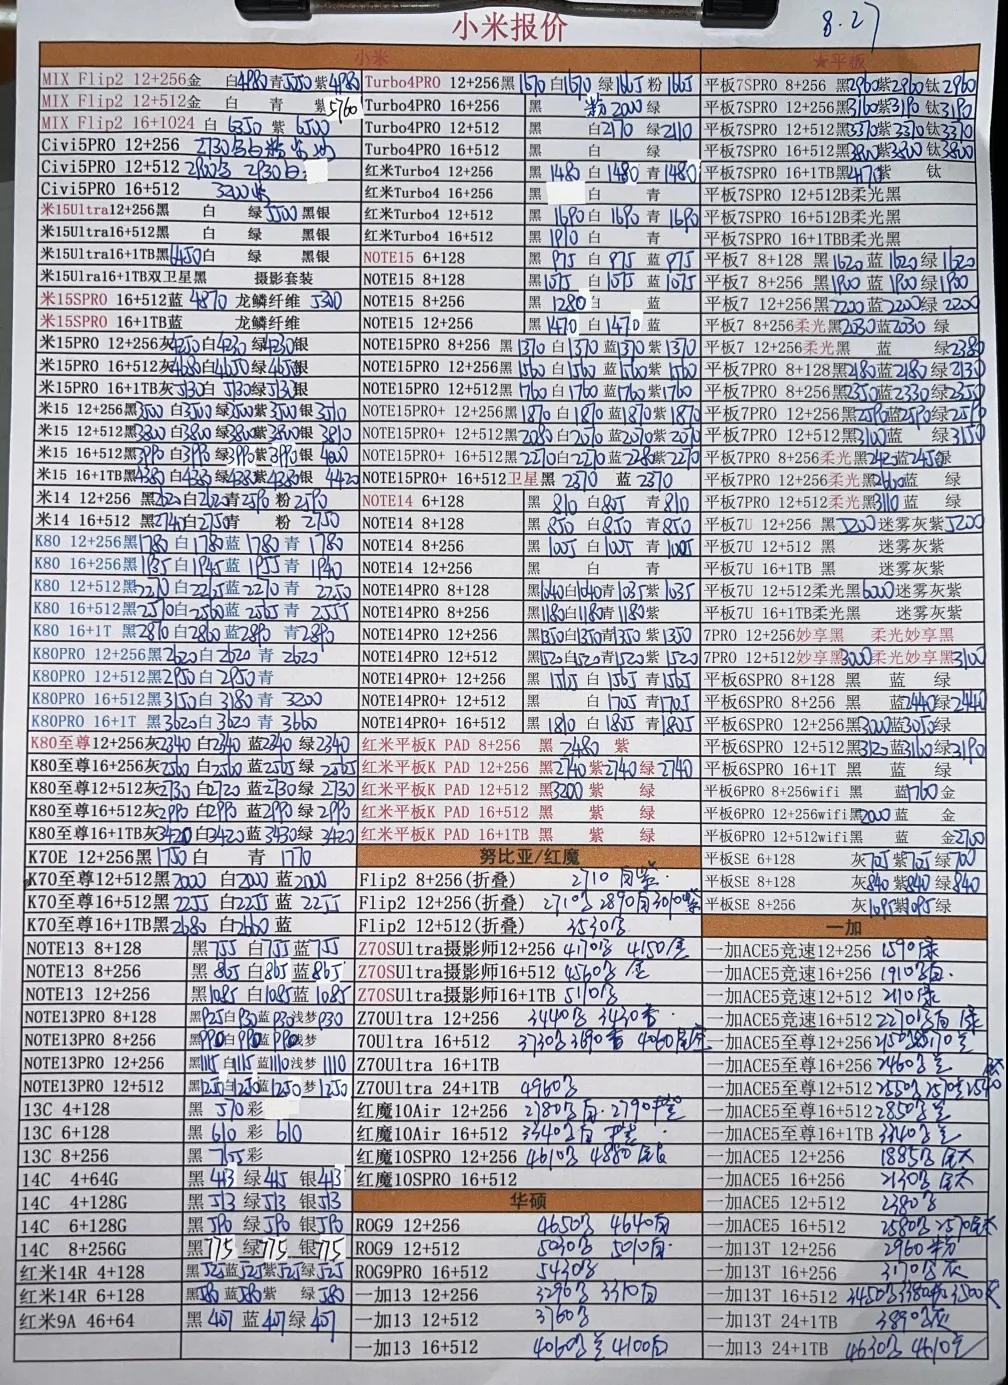 小米报价
8.27
小米
MIX Flip2 12+256金 白4980青5050紫4980
MIX Flip2 12+512金 白 青 紫5760
MIX Flip2 16+1024 白 6350 紫 6500
Civi5PRO 12+256 2730
Civi5PRO 12+512
Civi5PRO 16+512 3200紫
米15Ultra12+256黑 白 绿5500 黑银
米15Ultra16+512黑 白 绿 黑银
米15Ultra16+1TB黑6450白 绿 黑银
米15Ulra16+1TB双卫星黑 摄影套装
米15SPRO 16+512蓝 4870 龙鳞纤维 5300
米15SPRO 16+1TB蓝 龙鳞纤维
米15PRO 12+256灰4250白4230 绿4230银
米15PRO 16+512灰4680白4650 绿4650银
米15PRO 16+1TB灰5130白 5130绿5130银
米15 12+256黑3500 白3500 绿3500紫3500银 3510
米15 12+512黑3800 白3800 绿3800紫3800银 3810
米15 16+512黑3990 白3990 绿3990紫3990银 4000
米15 16+1TB黑4380 白4380 绿4380紫4380银 4420
米14 12+256 黑2620白2620青2590 粉 2590
米14 16+512 黑2740白2750青 粉 2750
K80 12+256黑1780 白1780蓝 1780 青 1780
K80 16+256黑1935 白1945蓝 1955 青 1940
K80 12+512黑2270 白2265蓝 2270 青 2250
K80 16+512黑2570 白2560 蓝 2565 青 2555
K80 16+1T 黑2870 白2860 蓝2890 青2890
K80PRO 12+256黑2620白 2620 青 2620
K80PRO 12+512黑2950白 2950青
K80PRO 16+512黑3150白 3180 青 3200
K80PRO 16+1T 黑3620白 3620 青 3660
K80至尊12+256灰2340 白2340 蓝2340 绿 2340
K80至尊16+256灰2560 白2560 蓝2565 绿 2565
K80至尊12+512灰2730 白2720 蓝2730 绿 2730
K80至尊16+512灰2990 白2990 蓝2990 绿 2990
K80至尊16+1TB灰3420白3420 蓝3430绿 3420
K70E 12+256黑1750 白 青 1770
K70至尊12+512黑2000 白2000 蓝2000
K70至尊16+512黑2255 白2255 蓝 2255
K70至尊16+1TB黑2680 白2660 蓝
NOTE13 8+128 黑755 白755 蓝755
NOTE13 8+256 黑865 白865 蓝865
NOTE13 12+256 黑1085 白1085 蓝1085
NOTE13PRO 8+128 黑925白930蓝930浅梦930
NOTE13PRO 8+256 黑990白990蓝990浅梦
NOTE13PRO 12+256 黑1115 白1115 蓝1110浅梦 1110
NOTE13PRO 12+512 黑1250白1250蓝1250浅梦 1250
13C 4+128 黑 570 彩
13C 6+128 黑 610 彩 610
13C 8+256 黑 715彩
14C 4+64G 黑 443 绿 445 银 443
14C 4+128G 黑 513 绿513 银513
14C 6+128G 黑 590 绿590 银590
14C 8+256G 黑775 绿775 银775
红米14R 4+128 黑525蓝525紫525绿525
红米14R 6+128 黑580蓝580紫 绿580
红米9A 46+64 黑 407 蓝 407绿 407
Turbo4PRO 12+256黑1670 白1670 绿 1665 粉 1665
Turbo4PRO 16+256 黑 粉 2000 绿
Turbo4PRO 12+512 黑 白2170 绿2110
Turbo4PRO 16+512 黑 白 绿
红米Turbo4 12+256 黑1480 白1480 青 1480
红米Turbo4 16+256 黑 白 青
红米Turbo4 12+512 黑1690 白1690 青 1690
红米Turbo4 16+512 黑 1910 白 青
NOTE15 6+128 黑 975 白 975 蓝 975
NOTE15 8+128 黑1075 白1075 蓝 1075
NOTE15 8+256 黑 1280白 蓝
NOTE15 12+256 黑1470 白1470 蓝
NOTE15PRO 8+256 黑1370 白1370 蓝1370 紫 1370
NOTE15PRO 12+256黑1560 白1560 蓝1560 紫 1560
NOTE15PRO 12+512黑1760 白1760 蓝1760紫1760
NOTE15PRO+ 12+256黑1870 白1870 蓝1870紫1870
NOTE15PRO+ 12+512黑2080白2070 蓝2070紫2070
NOTE15PRO+ 16+512黑2270白2270 蓝2280紫2270
NOTE15PRO+ 16+512卫星黑 2370 蓝 2370
NOTE14 6+128 黑 810 白805 青 810
NOTE14 8+128 黑 850 白850 青 850
NOTE14 8+256 黑 1005 白1005 青 1005
NOTE14 12+256 黑 白 青
NOTE14PRO 8+128 黑1040白1040青1035紫 1035
NOTE14PRO 8+256 黑1180白1180青1180紫
NOTE14PRO 12+256 黑1350白1350青1350 紫 1350
NOTE14PRO 12+512 黑1520白1520青1520 紫 1520
NOTE14PRO+ 12+256 黑 1565 白 1565 青1565
NOTE14PRO+ 12+512 黑 白 1705 青1705
NOTE14PRO+ 16+512 黑 1810 白 1805 青1805
红米平板K PAD 8+256 黑 2480 紫
红米平板K PAD 12+256 黑2740 紫2740 绿 2740
红米平板K PAD 12+512 黑3200 紫 绿
红米平板K PAD 16+512 黑 紫 绿
红米平板K PAD 16+1TB 黑 紫 绿
努比亚/红魔
Flip2 8+256(折叠) 2710
Flip2 12+256(折叠)
Flip2 12+512(折叠) 3530
Z70SUltra摄影师12+256 4170 4150
Z70SUltra摄影师16+512 4560
Z70SUltra摄影师16+1TB 5110
Z70Ultra 12+256 3440 3430
70Ultra 16+512 3730 3690 4060
Z70Ultra 16+1TB
Z70Ultra 24+1TB 4960
红魔10Air 12+256 2780 2790
红魔10Air 16+512 3340
红魔10SPRO 12+256 4610 4880
红魔10SPRO 16+512
华硕
ROG9 12+256 4650 4640白
ROG9 12+512 5030 5010白
ROG9PRO 16+512 5430
一加13 12+256 3290 3310白
一加13 12+512 3760
一加13 16+512 4060 4100白
★平板
平板7SPRO 8+256 黑2960紫2960钛 2960
平板7SPRO 12+256黑3160紫3190钛3190
平板7SPRO 12+512黑3370紫3370钛3370
平板7SPRO 16+512黑3800紫3800钛 3800
平板7SPRO 16+1TB黑4170紫 钛
平板7SPRO 12+512B柔光黑
平板7SPRO 16+512B柔光黑
平板7SPRO 16+1TBB柔光黑
平板7 8+128 黑1620 蓝 1620绿 1620
平板7 8+256 黑1900 蓝 1900绿 1900
平板7 12+256 黑2200蓝2200绿 2200
平板7 8+256柔光黑2030蓝2030 绿
平板7 12+256柔光黑 蓝 绿2380
平板7PRO 8+128黑2180蓝2180 绿2130
平板7PRO 8+256黑2350蓝2330 绿2350
平板7PRO 12+256黑2590蓝2590绿2590
平板7PRO 12+512黑3100蓝 绿3150
平板7PRO 8+256柔光黑2420蓝2450绿
平板7PRO 12+256柔光黑2660蓝 绿
平板7PRO 12+512柔光黑3110蓝 绿
平板7U 12+256 黑5200 迷雾灰紫5200
平板7U 12+512 黑 迷雾灰紫
平板7U 16+1TB 黑 迷雾灰紫
平板7U 12+512柔光黑6000迷雾灰紫
平板7U 16+1TB柔光黑 迷雾灰紫
7PRO 12+256妙享黑 柔光妙享黑
7PRO 12+512妙享黑3000柔光妙享黑3100
平板6SPRO 8+128 黑 蓝 绿
平板6SPRO 8+256 黑 蓝2440绿2440
平板6SPRO 12+256黑3000蓝3050绿
平板6SPRO 12+512黑3125蓝3160绿3190
平板6SPRO 16+1T 黑 蓝 绿
平板6PRO 8+256wifi 黑 蓝1760 金
平板6PRO 12+256wifi黑2000 蓝 金
平板6PRO 12+512wifi黑 蓝 金2700
平板SE 6+128 灰705 紫705 绿 700
平板SE 8+128 灰840 紫840 绿 840
平板SE 8+256 灰1095紫1095绿
一加
一加ACE5竞速12+256 1590绿
一加ACE5竞速16+256 1910
一加ACE5竞速12+512 2110绿
一加ACE5竞速16+512 2270
一加ACE5至尊12+256
一加ACE5至尊16+256 2460
一加ACE5至尊12+512 2550
一加ACE5至尊16+512 2850
一加ACE5至尊16+1TB 3340
一加ACE5 12+256 1885
一加ACE5 16+256 2130
一加ACE5 12+512 2380
一加ACE5 16+512 2580
一加13T 12+256 2960
一加13T 16+256 3170
一加13T 16+512
一加13T 24+1TB 3890
一加13 24+1TB 4630 4610